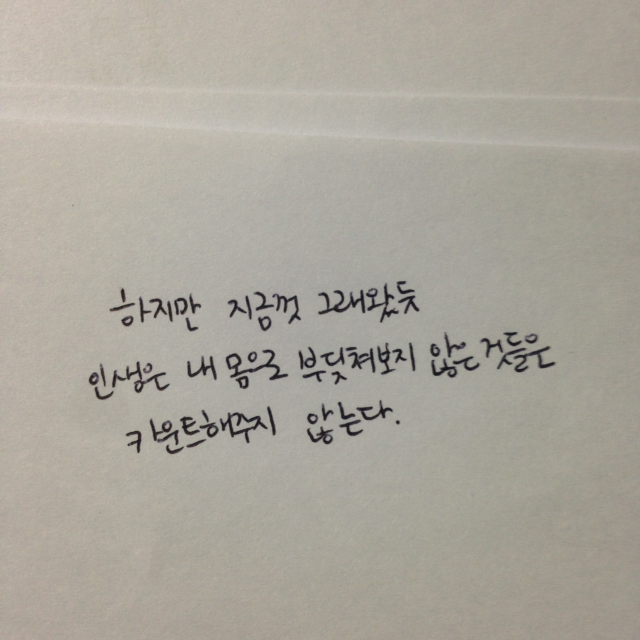 하지만 지금껏 그래왔듯
인생은 내 몸으로 부딪쳐보지 않은 것들은
카운트해주지 않는다.